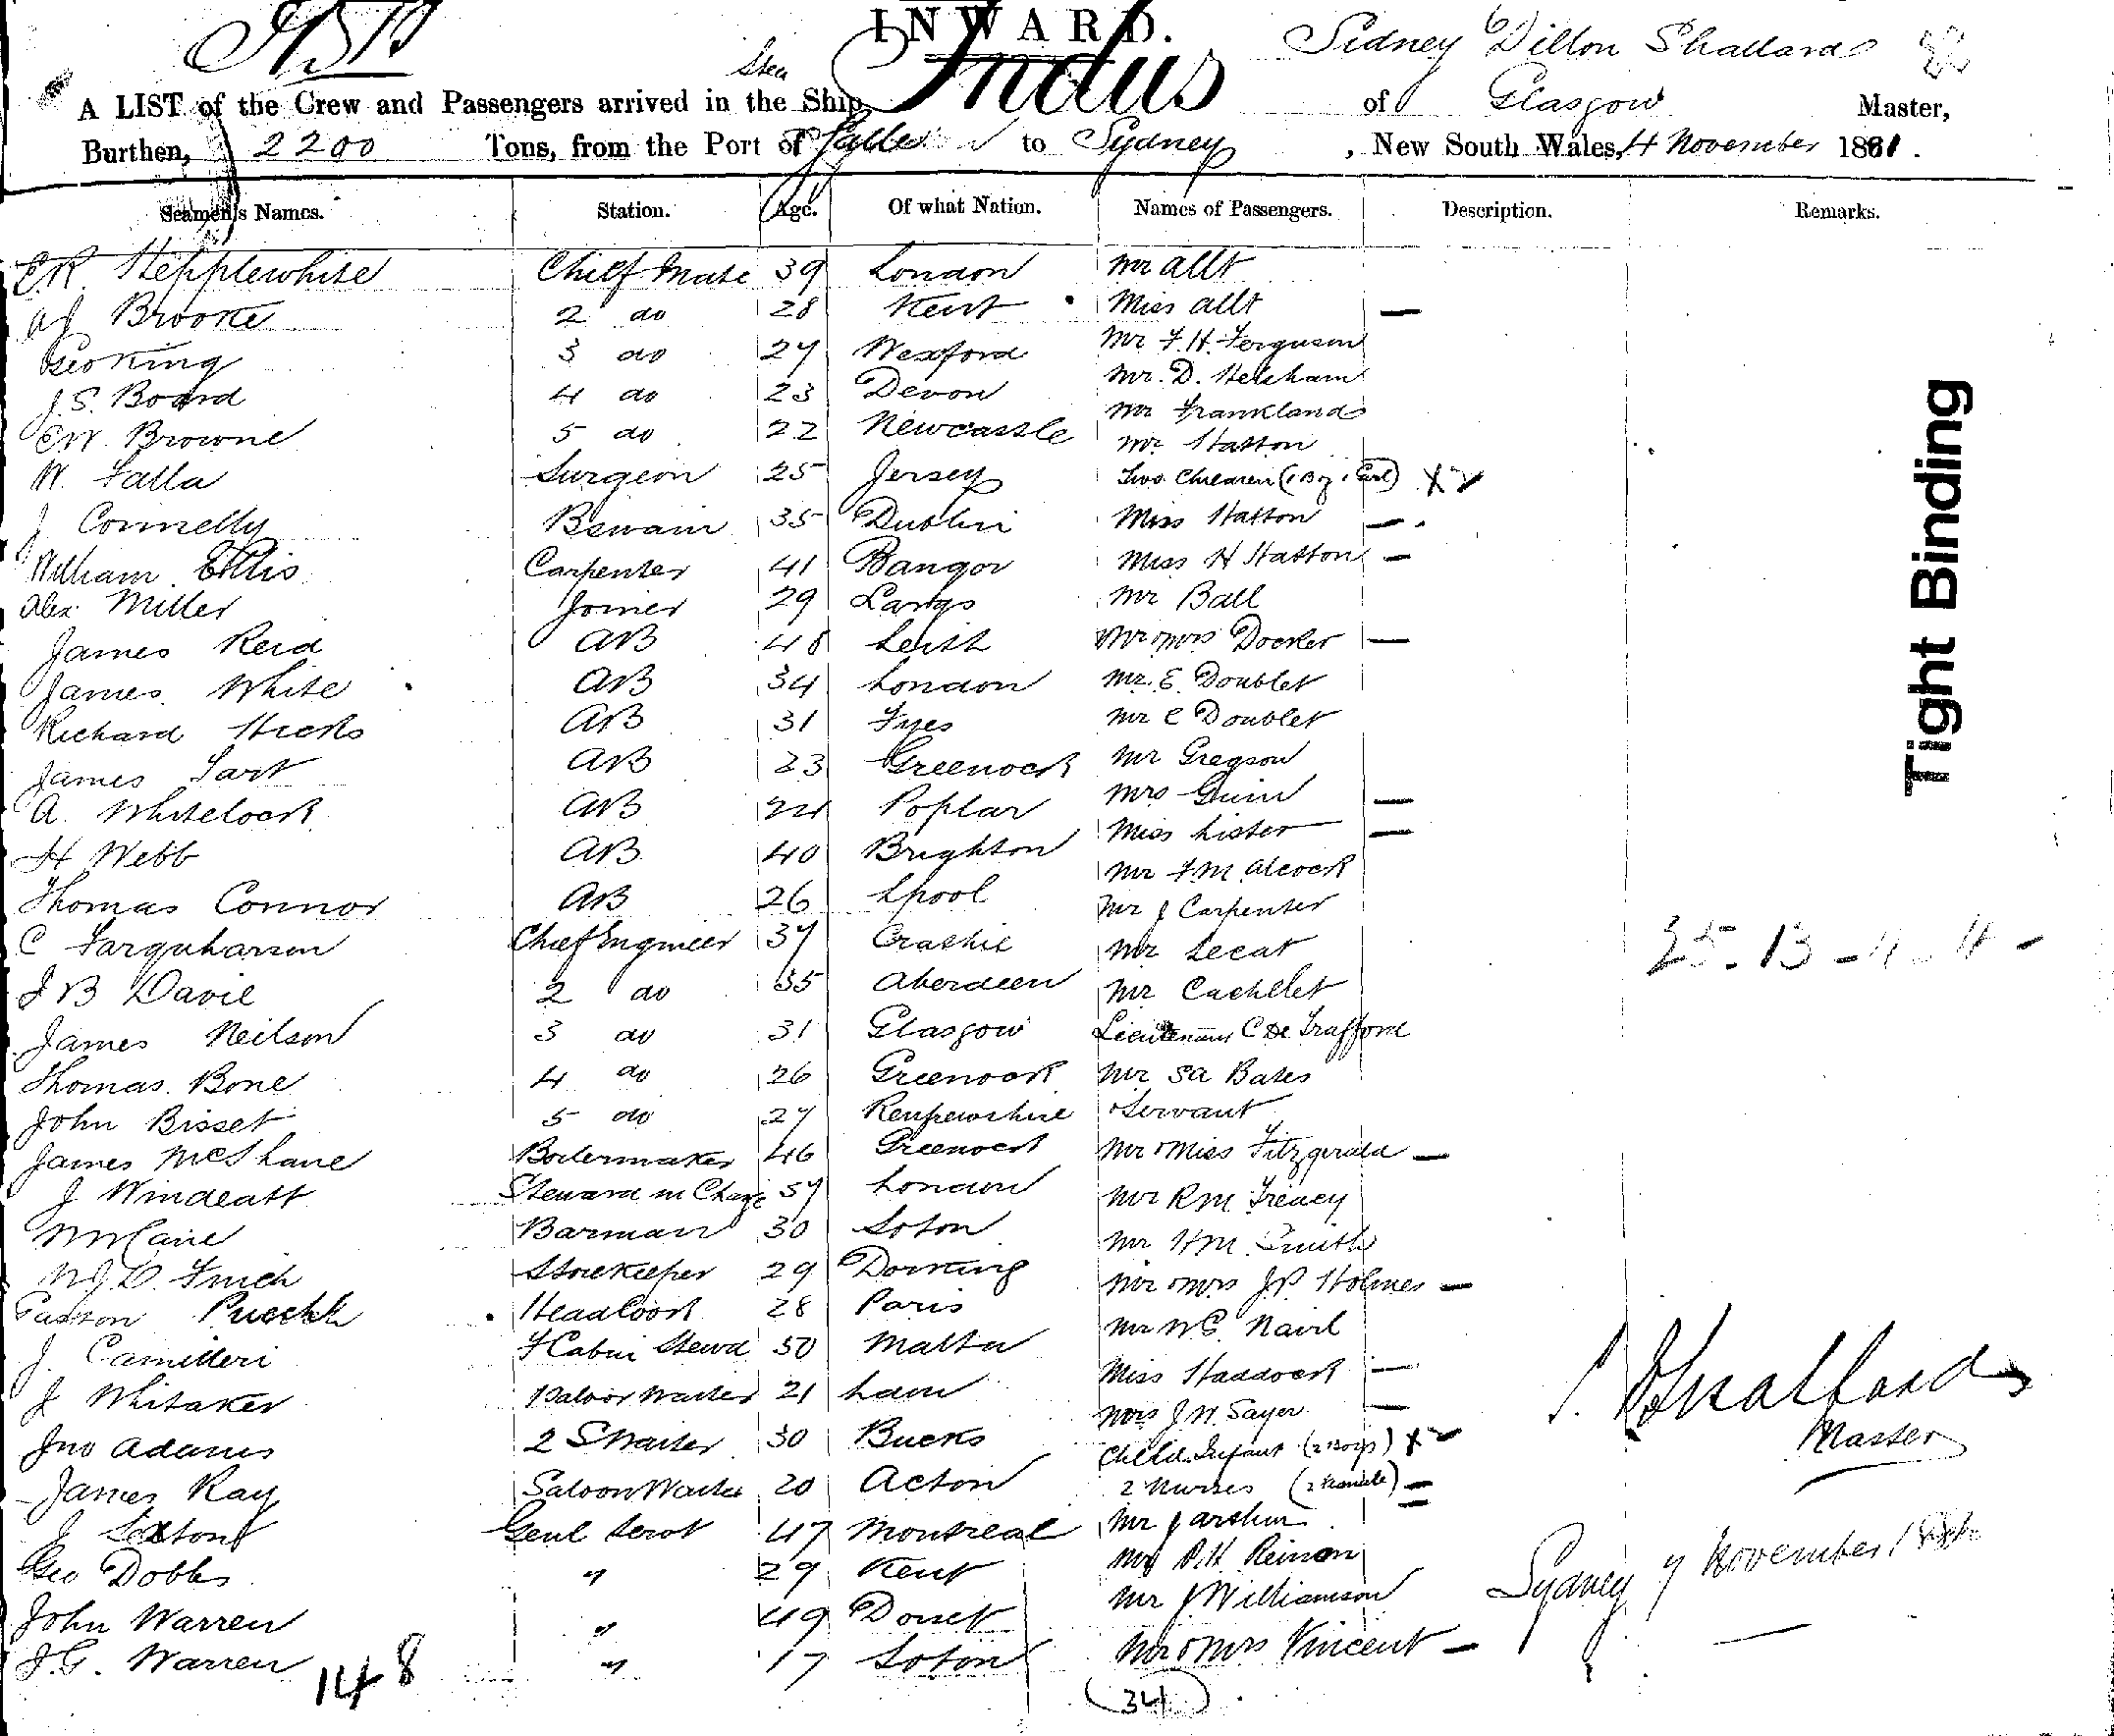 INWARD.
Stea Indus Sidney Dillon Shallard
A LIST of the Crew and Passengers arrived in the Ship of Glasgow Master,
Burthen, 2200 Tons, from the Port of Galle to Sydney, New South Wales, 4 November 1881.
Seamen's Names. Station. Age. Of what Nation. Names of Passengers. Description. Remarks.
E.R. Hepplewhite Chief Mate 39 London Mr Allt
A J Brooke 2 do 28 Kent Miss Allt —
Geo King 3 do 27 Wexford Mr F. H. Ferguson
J. S. Board 4 do 23 Devon Mr. D. Helsham
E W. Browne 5 do 22 Newcastle Mr Franklands
Mr Hatton
W. Falla Surgeon 25 Jersey Two Children (1 Boy 1 Girl) X
J Connelly Bswain 35 Dublin Miss Hatton —
William Ellis Carpenter 41 Bangor Miss H Hatton —
Alex Miller Joiner 29 Largs Mr Ball
James Reid AB 48 Leith Mr & Mrs Docker —
James White AB 34 London Mr. E. Doublet
Richard Hicks AB 31 Fyes Mr C Doublet
James Tart AB 23 Greenock Mr Gregson
A. Whitelock AB 24 Poplar Mrs Guinn —
H Webb AB 40 Brighton Miss Lister —
Mr F M Alcock
Thomas Connor AB 26 Lpool Mr J Carpenter
C Farquharson Chief Engineer 37 Crathie Mr Lecat
J B Davie 2 do 35 Aberdeen Mr Cachelet
James Neilson 3 do 31 Glasgow Lieutenant C De Trafford
Thomas Bone 4 do 26 Greenock Mr SA Bates
John Bisset 5 do 27 Renfrewshire Servant
James McShane Boilermaker 46 Greenock Mr & Miss Fitzgerald —
J Windeatt Steward in Charge 57 London Mr R M Treacy
W Cane Barman 30 Soton Mr H M Smith
W J D. Finch Storekeeper 29 Dorking Mr & Mrs J. P. Holmes —
Gaston Head Cook 28 Paris Mr W G. Nairl
J. Camilleri F Cabin Stewd 50 Malta
Miss Haddock —
J Whitaker Saloon Waiter 21 Mrs J. W. Sayer —
Jno Adams 2 S Waiter 30 Bucks Child. Infant (2 Boys) X
James Ray Saloon Waiter 20 Acton 2 Nurses (2 Female) —
J Sexton Genl Servt 47 Montreal Mr J
Geo Dobbs " 29 Kent
John Warren " 49 Dorset Mr J Williamson
J. G. Warren " 17 Soton Mr & Mrs Vincent —
148
(34)
Master
Sydney 7 November
Tight Binding